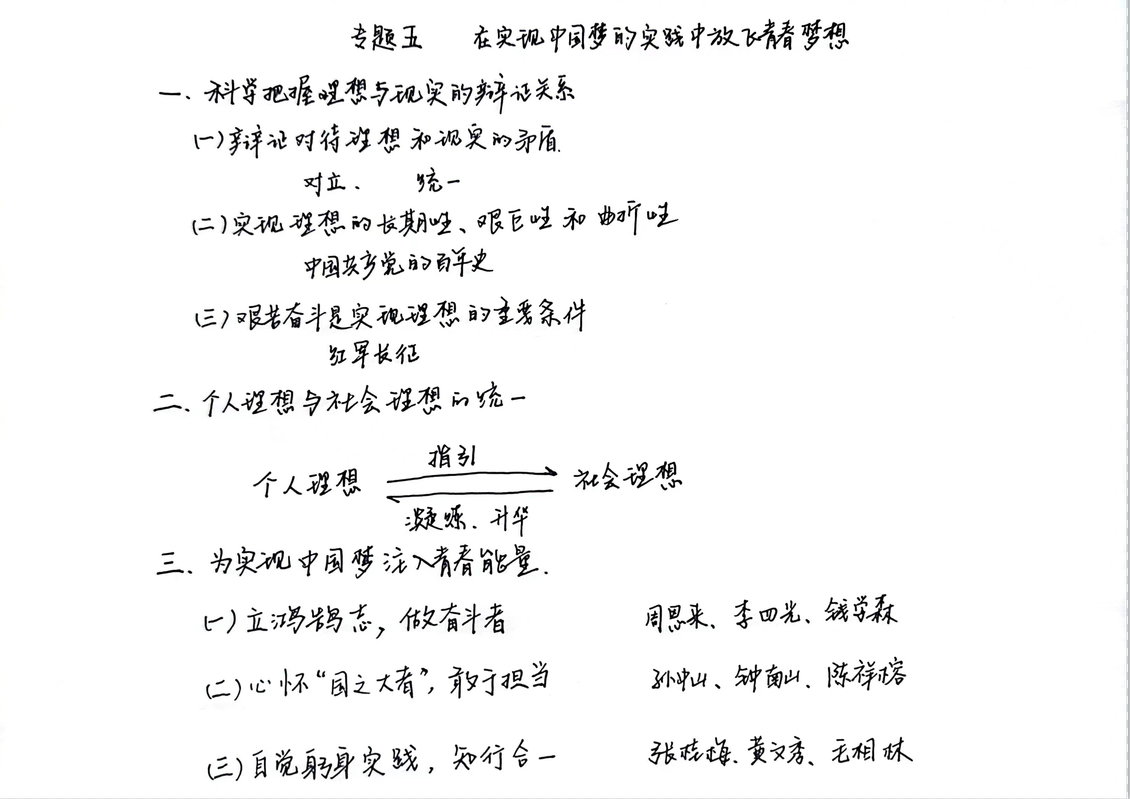 专题五 在实现中国梦的实践中放飞青春梦想
一、科学把握理想与现实的辩证关系
(一)辩证对待理想和现实的矛盾.
对立、 统一
(二)实现理想的长期性、艰巨性和曲折性
中国共产党的百年史
(三)艰苦奋斗是实现理想的重要条件
红军长征
二、个人理想与社会理想的统一
指引
个人理想 社会理想
凝炼、升华
三、为实现中国梦注入青春能量.
(一)立鸿鹄志,做奋斗者 周恩来、李四光、钱学森
(二)心怀“国之大者”,敢于担当 孙中山、钟南山、陈祥榕
(三)自觉躬身实践,知行合一 张桂梅、黄文秀、毛相林